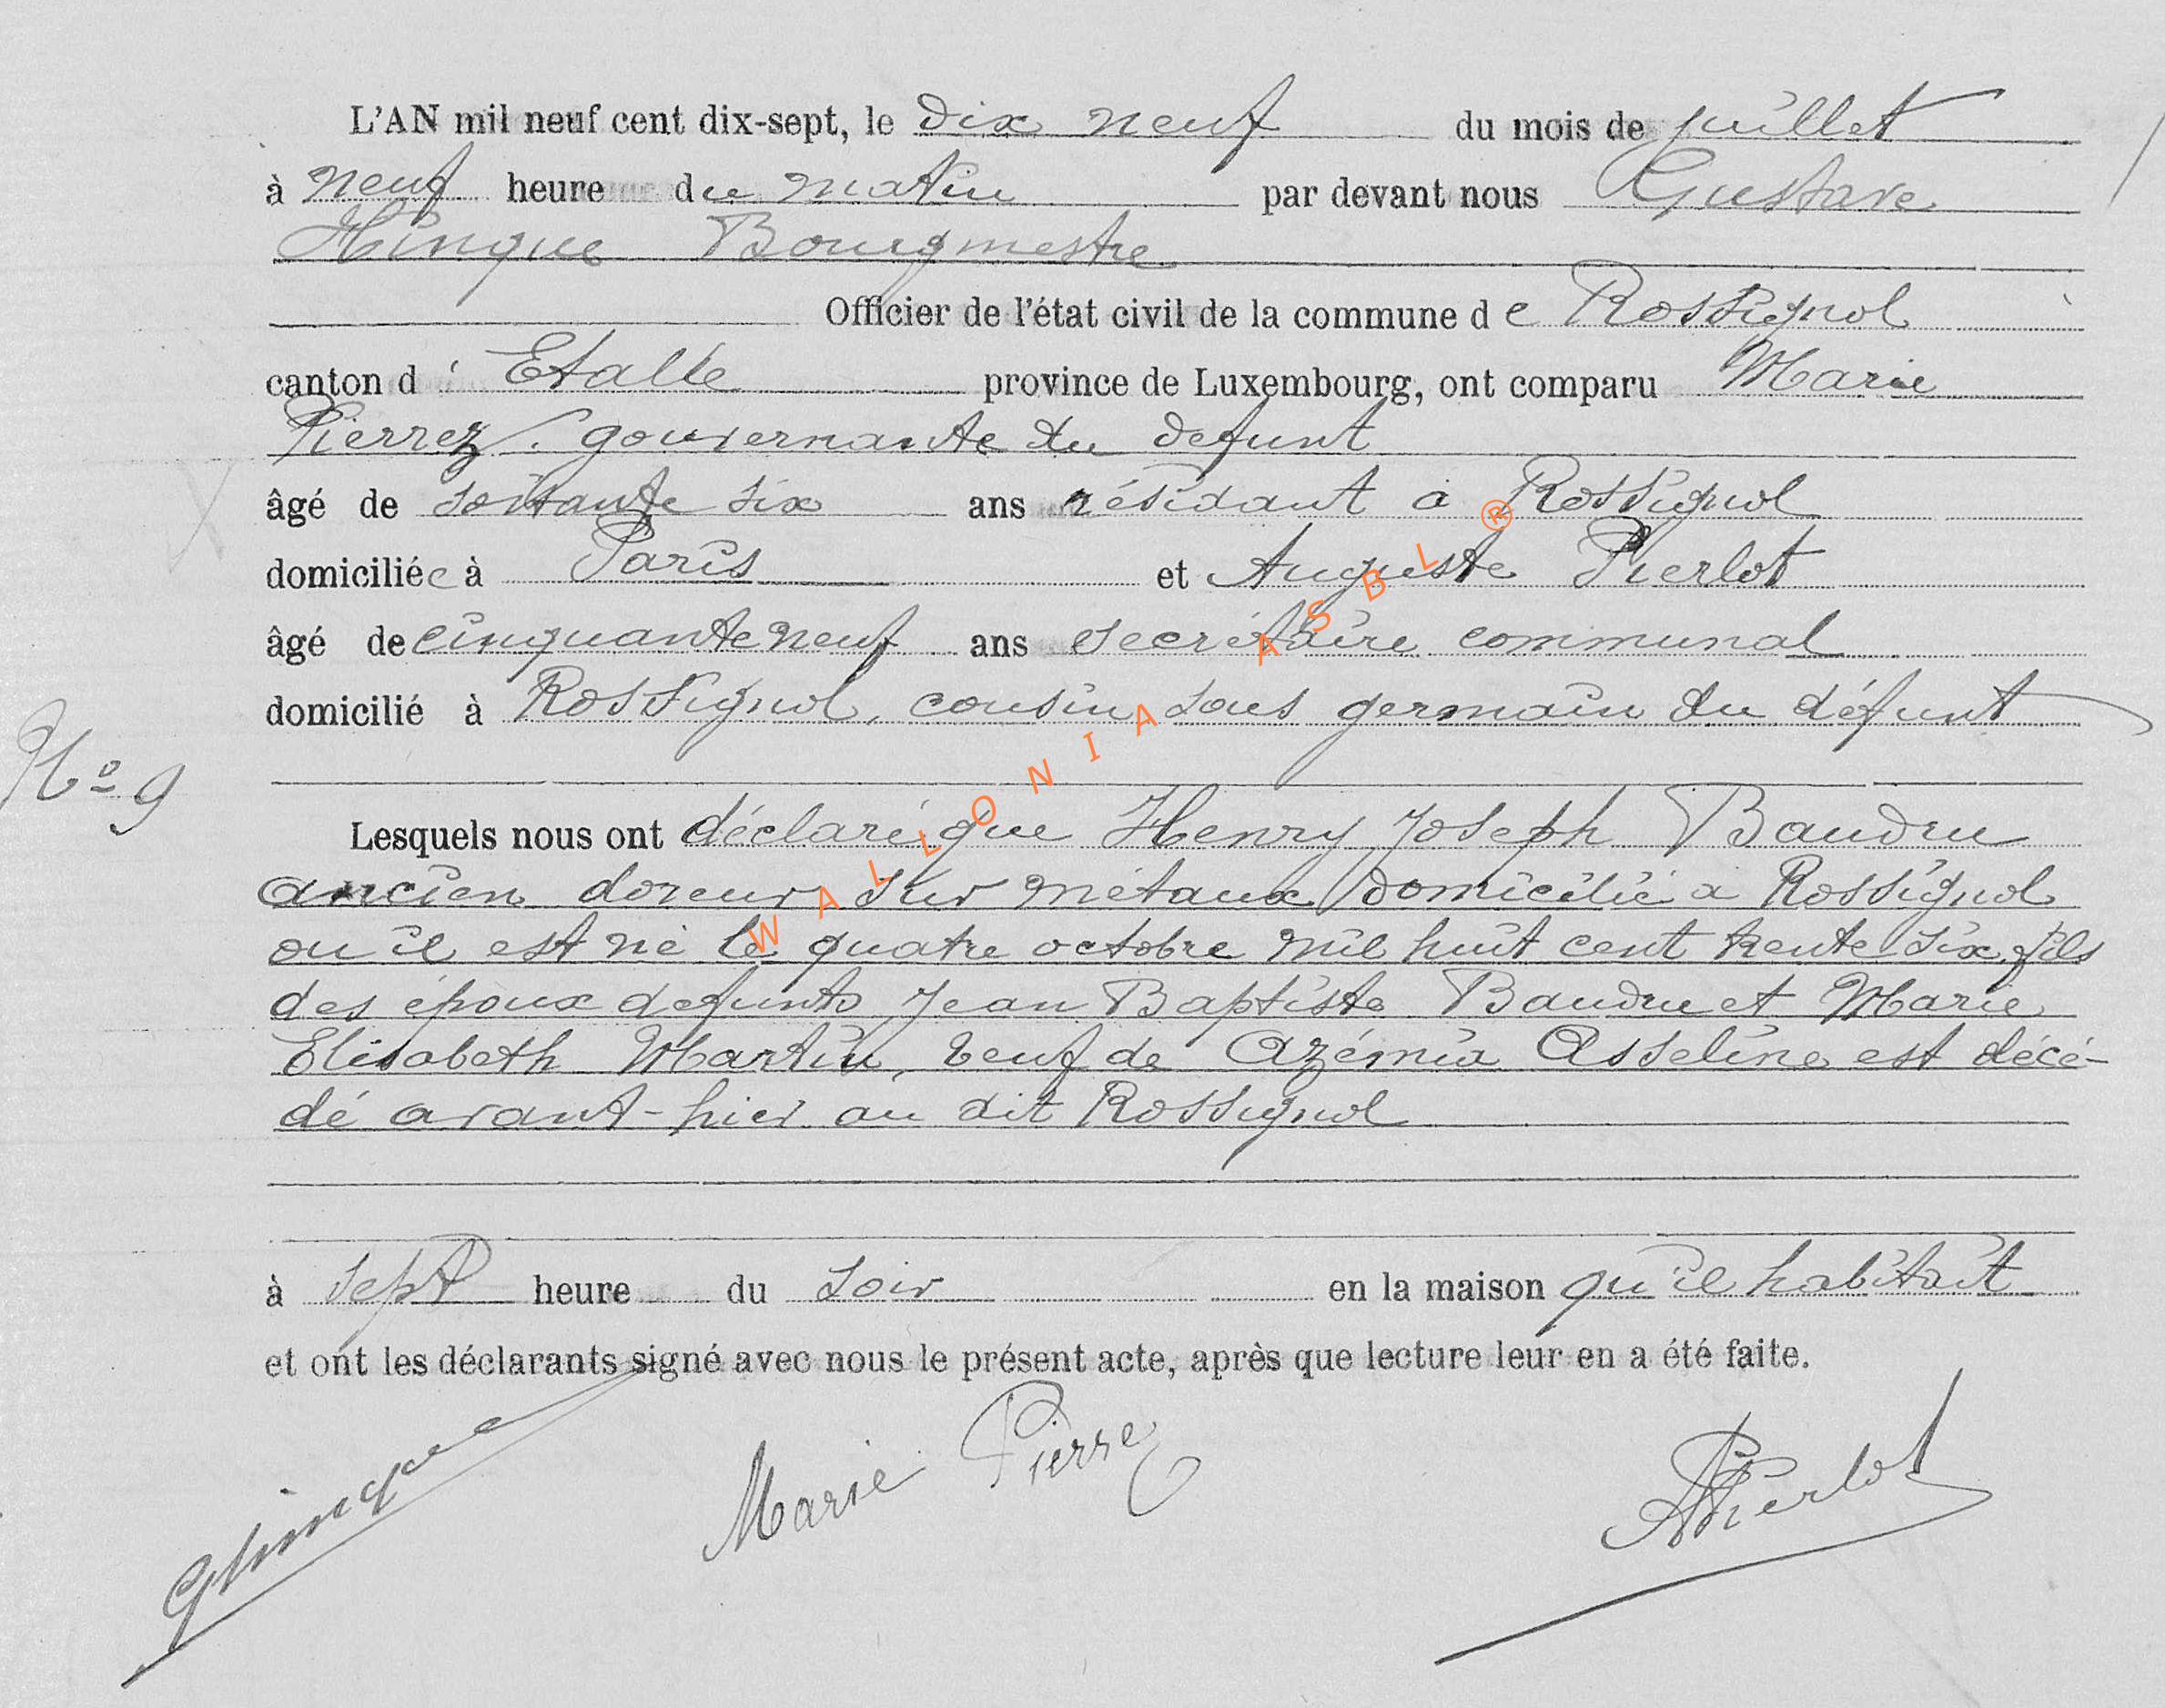 L'AN mil neuf cent dix-sept, le dix neuf du mois de juillet
à neuf heure du matin par devant nous Gustave
Hinque Bourgmestre
Officier de l'état civil de la commune de Rossignol
canton d' Etalle province de Luxembourg, ont comparu Marie
Pierrez, gouvernante du defunt
âgé de soixante six ans résidant à Rossignol
domiciliée à Paris et Auguste Pierlot
âgé de cinquante neuf ans secrétaire communal
domicilié à Rossignol, cousin sous germain du défunt
No 9
Lesquels nous ont déclaré que Henry Joseph Baudru
ancien doreur sur métaux domicilié à Rossignol
ou il est né le quatre octobre mil huit cent trente six, fils
des époux defunts Jean Baptiste Baudru et Marie
Elisabeth Martin, veuf de Azémia Asseline est décé-
dé avant-hier au dit Rossignol
à sept heure du soir en la maison qu'il habitait
et ont les déclarants signé avec nous le présent acte, après que lecture leur en a été faite.
GHinque Marie Pierrez APierlot
WALLONIA ASBL ®